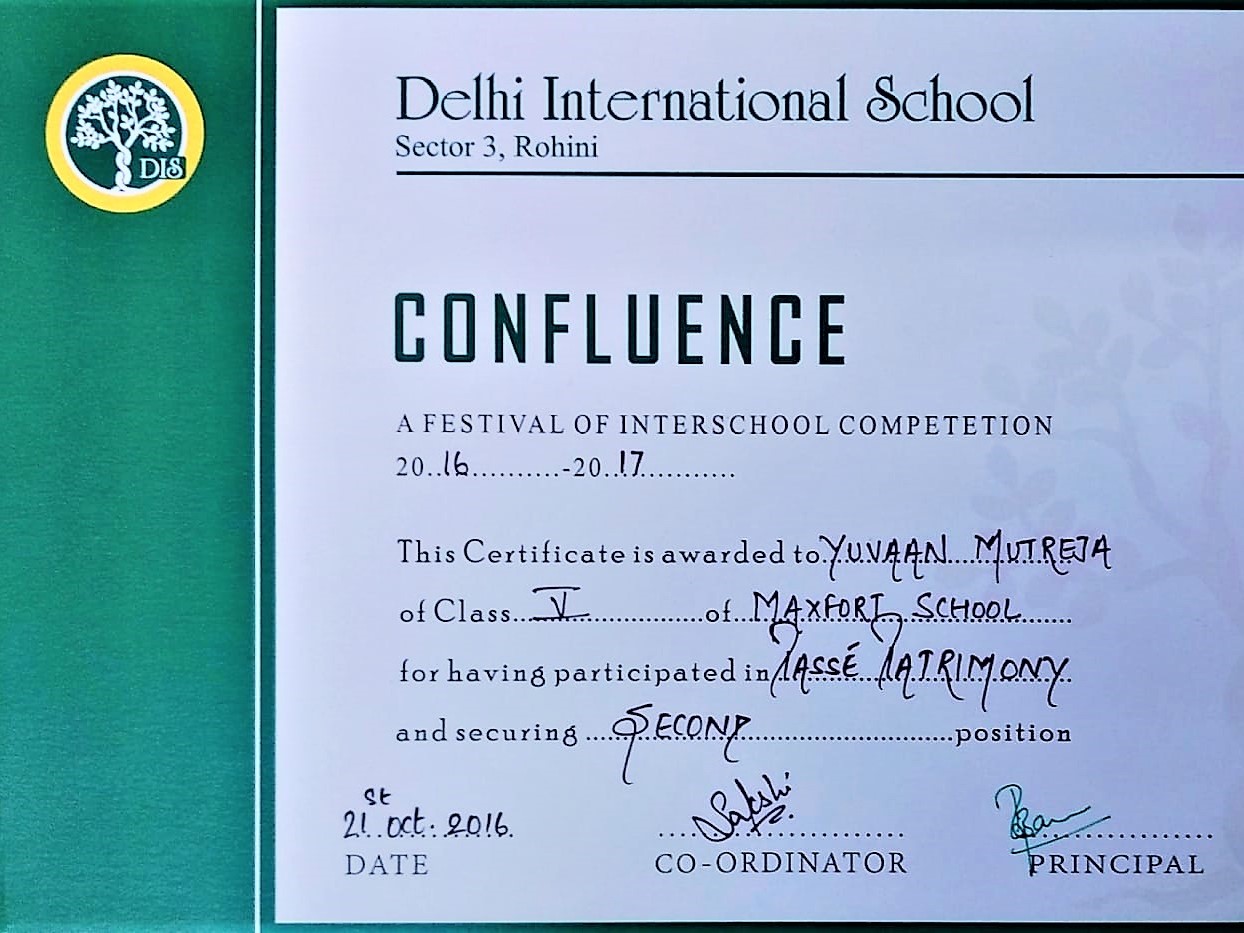 DIS
Delhi International School
Sector 3, Rohini
CONFLUENCE
A FESTIVAL OF INTERSCHOOL COMPETETION
20..16..........-20..17...........
This Certificate is awarded to YUVAAN MUTREJA
of Class V of MAXFORT SCHOOL
for having participated in PASSÉ PATRIMONY
and securing SECOND position
21st Oct. 2016. Sakshi
DATE CO-ORDINATOR PRINCIPAL